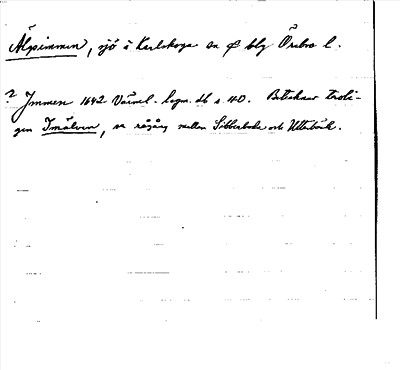 Älgsimmen, sjö i Karlskoga sn Ø blg Örebro l.
? Immen 1642 Värml. lagn. db s. 40. Betecknar troli-
gen Imälven, se rågång mellan Sibberboda och Ullebäck.